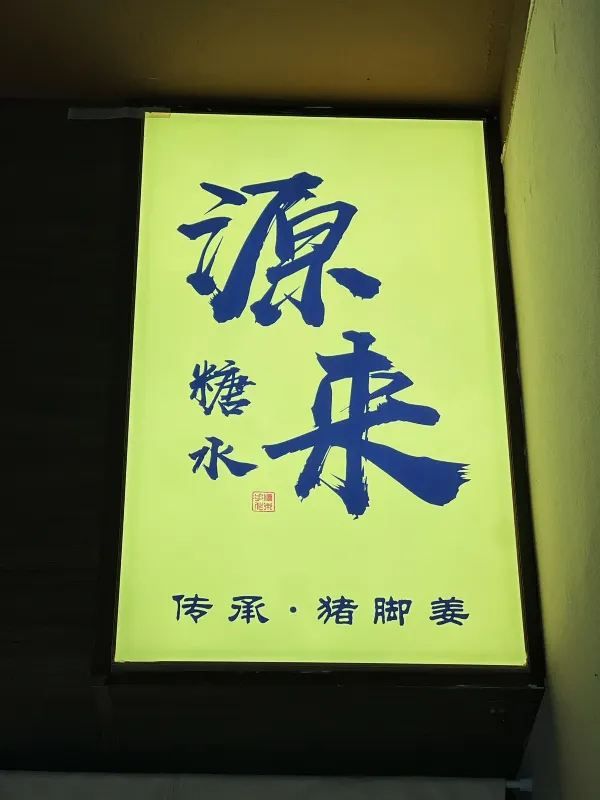 源来
糖水
传承·猪脚姜